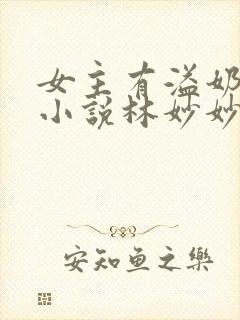 女主有溢奶
小說林妙妙
安知鱼之樂